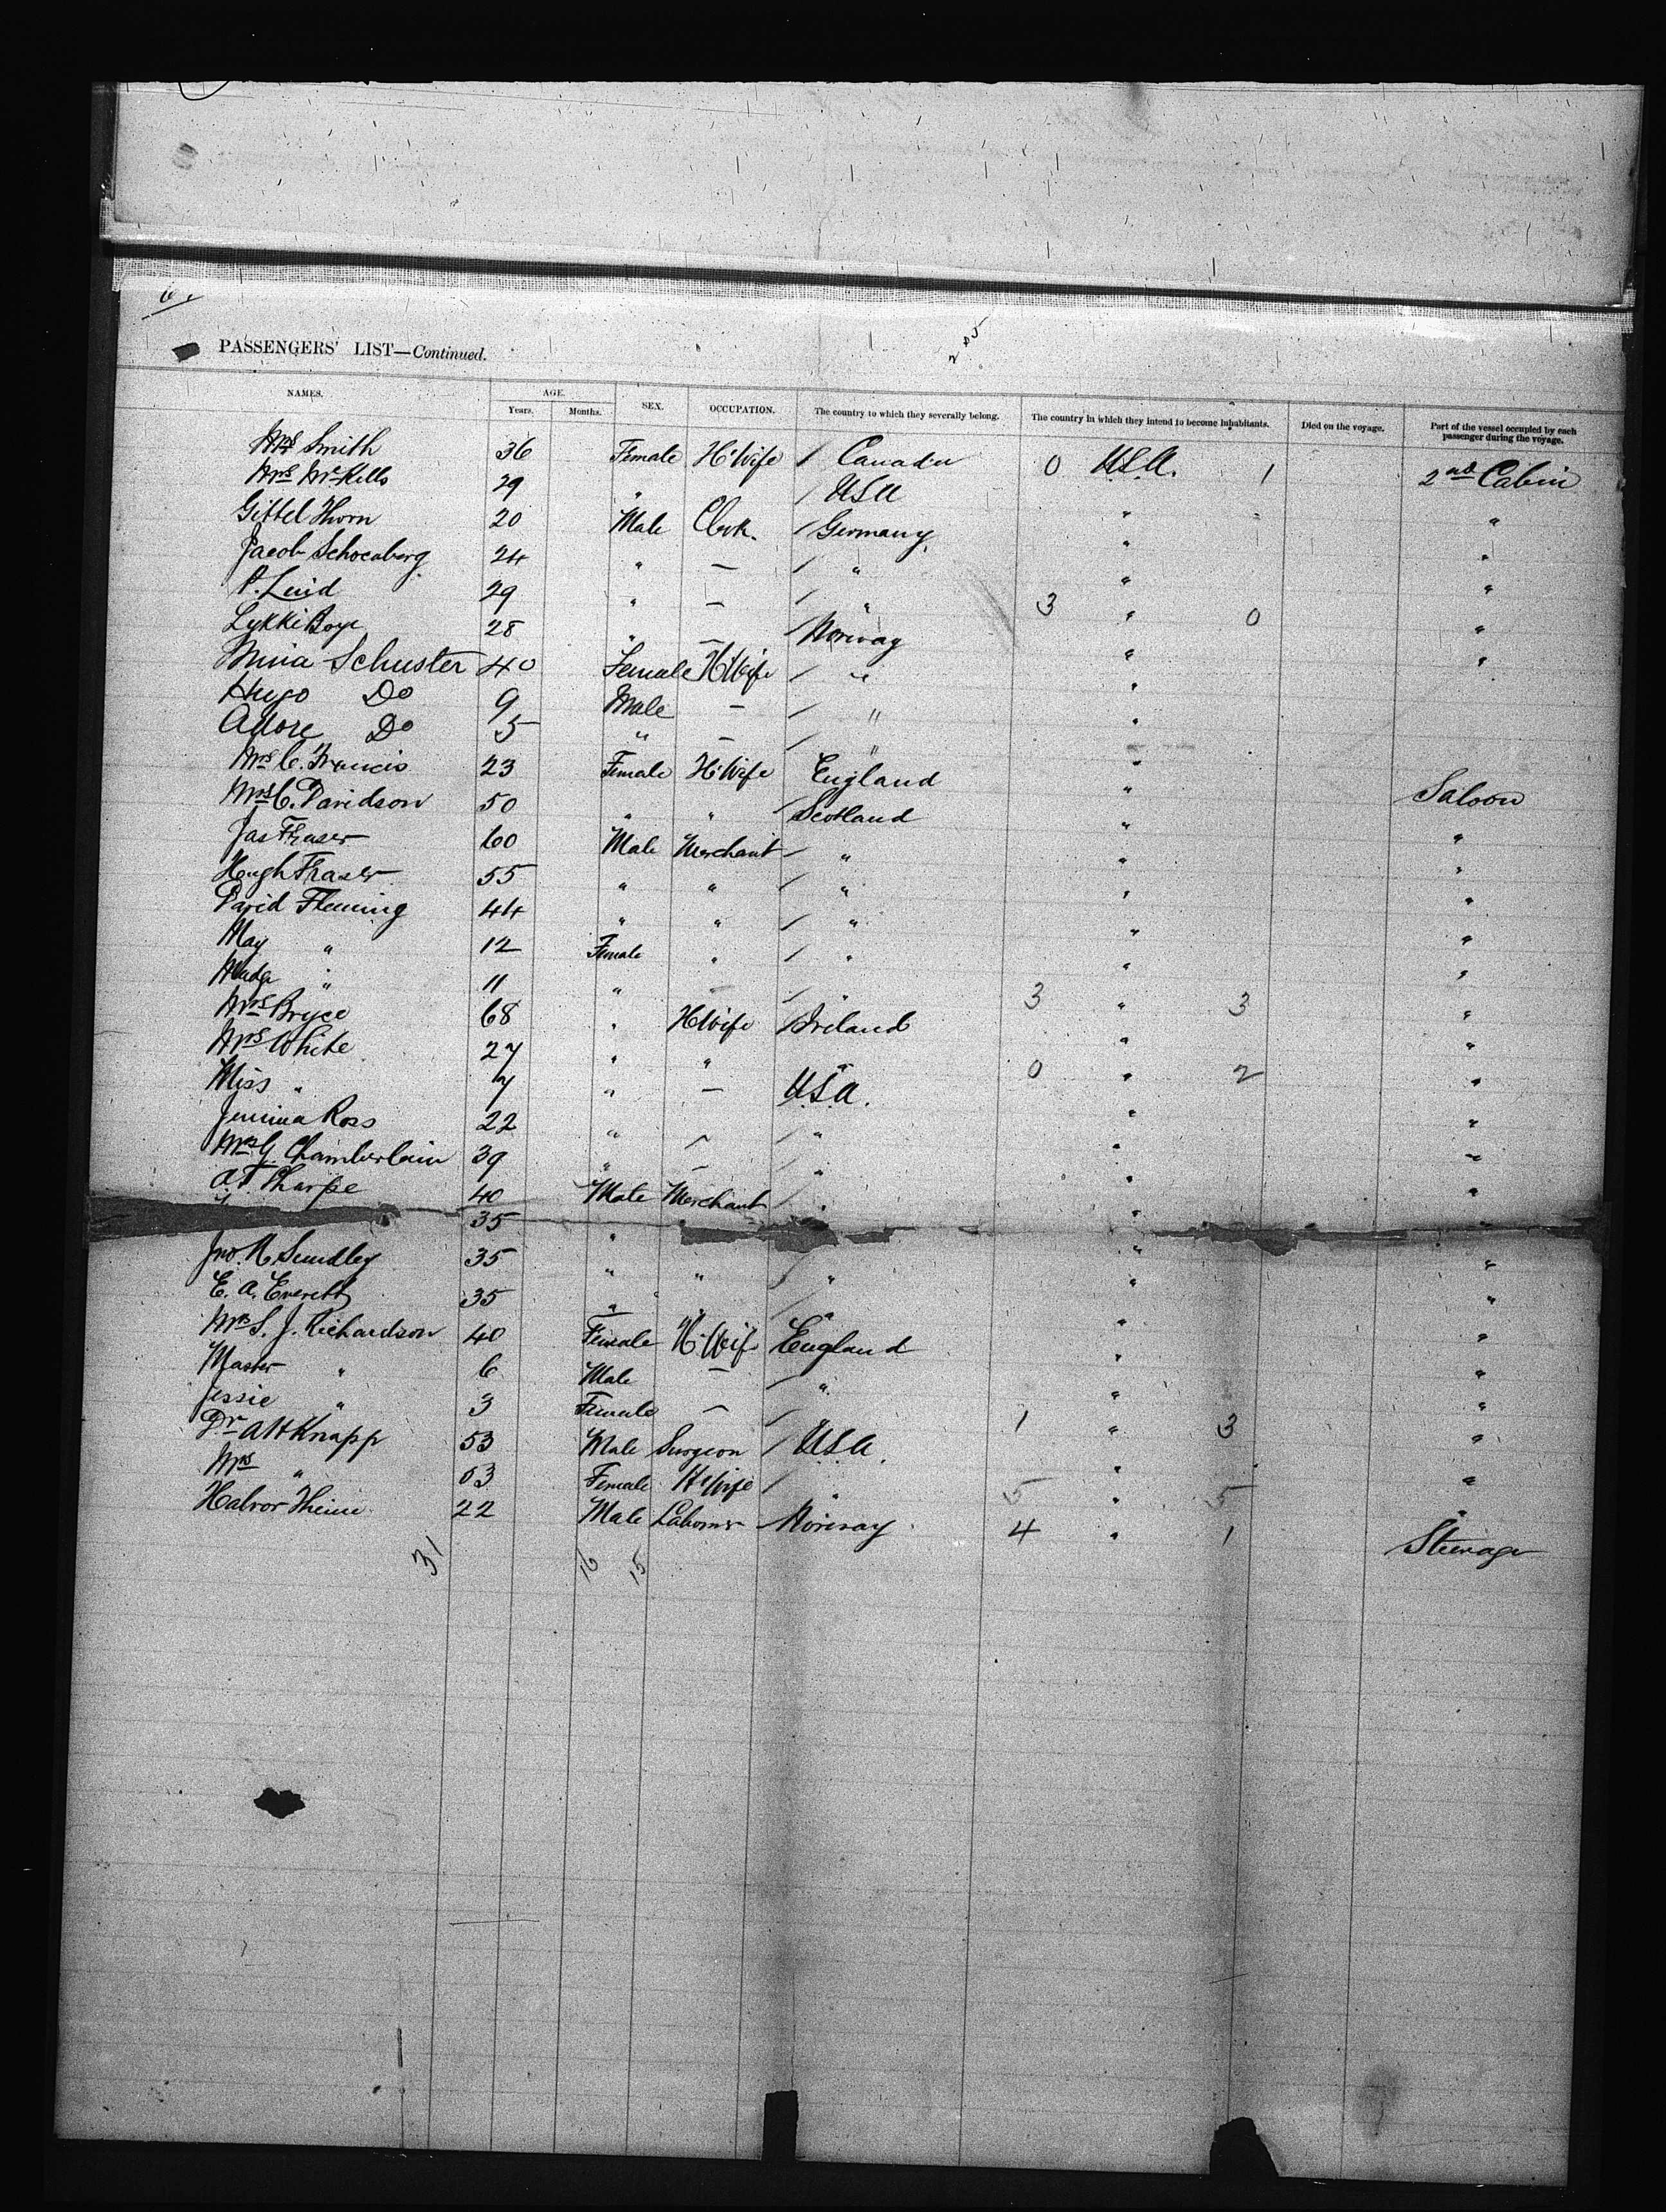 PASSENGERS' LIST—Continued.
NAMES. AGE. Years. Months. SEX. OCCUPATION. The country to which they severally belong. The country in which they intend to become inhabitants. Died on the voyage. Part of the vessel occupied by each passenger during the voyage.
Mrs Smith 36 Female H'Wife / Canada 0 U.S.A. 1 2nd Cabin
Mrs 29 " / USA " "
Gittel Thorn 20 Male Clerk. / Germany " "
Jacob Schoenberg 24 " — / " " "
P. 29 " — / " 3 " 0 "
Lykki Boye 28 " — / Norway " "
Schuster 40 Female H'Wife / " "
Hugo Do 9 Male — / " "
Do 5 " — / " "
Mrs C. Francis 23 Female H'Wife England " Saloon
Mrs C. Davidson 50 " " Scotland " "
Jas Fraser 60 Male Merchant / " " "
Hugh Fraser 55 " " / " " "
David Fleming 44 " " / " " "
May " 12 Female " / " " "
Madge " 11 " — / " 3 " 3 "
Mrs Bryce 68 " H'Wife / Ireland " "
Mrs White 27 " " " 0 " 2 "
Miss " 7 " — U.S.A. " "
Jemima Ross 22 " — / " " "
Mrs G. Chamberlain 39 " — / " " "
A. F. Sharpe 40 Male Merchant / " "
35 "
Jno. R. Smedley 35 " " / " " "
E. A. Everett 35 " " / " " "
Mrs S. J. Richardson 40 Female H'Wife England " "
Master " 6 Male — / " " "
Jessie " 3 Female — / 1 " 3 "
Dr A H Knapp 53 Male Surgeon / USA. " "
Mrs " 53 Female H'Wife / " 5 " 5 "
Halvor 22 Male Laborer Norway 4 " 1 Steerage
31 16 15